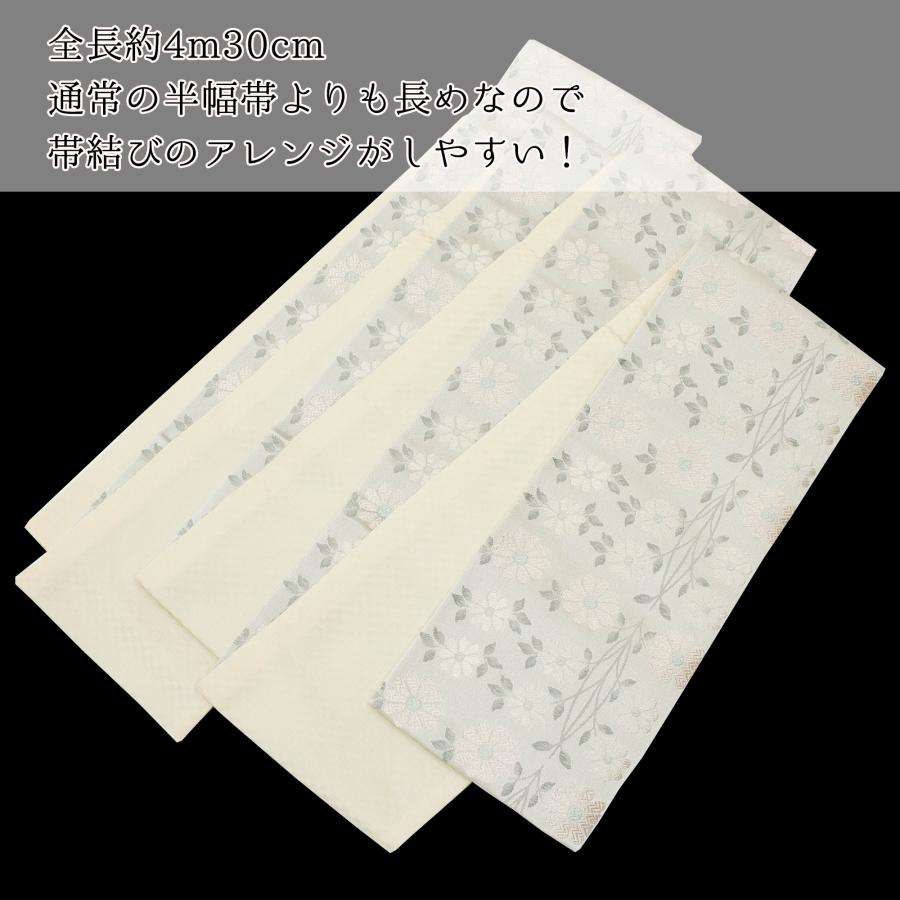 全長約4m30cm
通常の半幅帯よりも長めなので
帯結びのアレンジがしやすい！